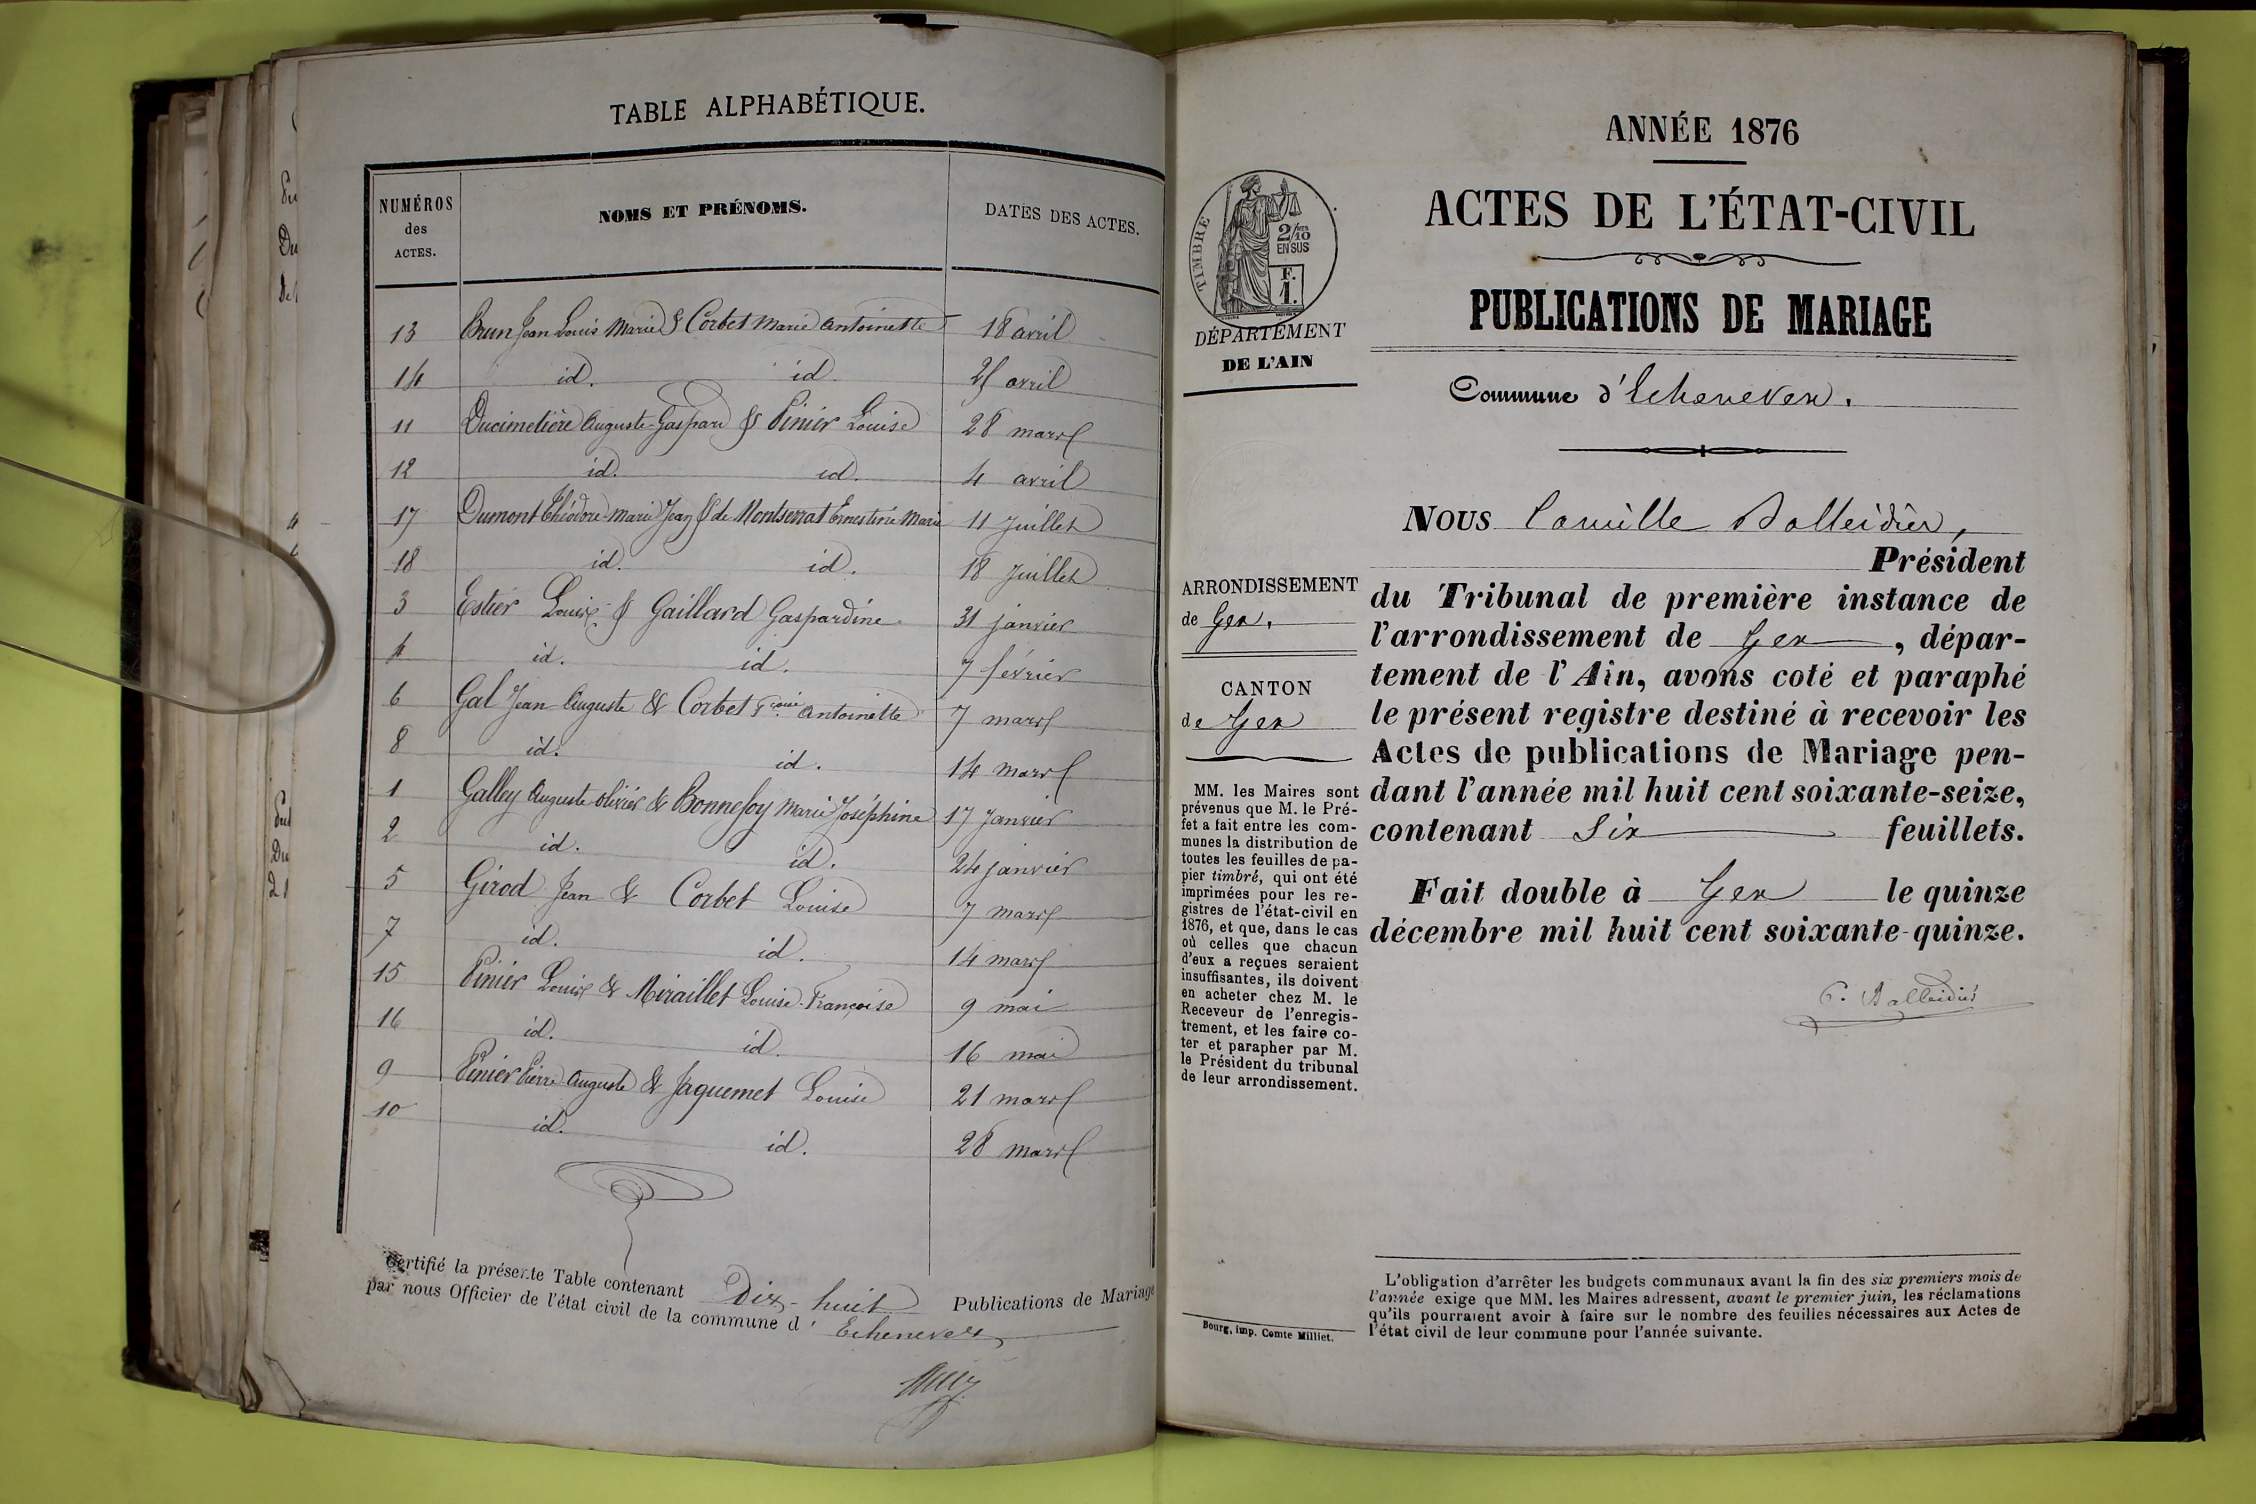 TABLE ALPHABÉTIQUE.
NUMÉROS des ACTES. NOMS ET PRÉNOMS. DATES DES ACTES.
13 Brun Jean Louis Marie & Corbet Marie Antoinette 18 avril
14 id. id. 25 avril
11 Ducimetière Auguste-Gaspard & Pinier Louise 28 mars
12 id. id. 4 avril
17 Dumont Théodore-Marie Jean & de Montserrat Ernestine Marie 11 Juillet
18 id. id. 18 Juillet
3 Estier Louis & Gaillard Gaspardine 31 janvier
4 id. id. 7 février
6 Gal Jean-Auguste & Corbet Fçoise Antoinette 7 mars
8 id. id. 14 mars
1 Galley Auguste Olivier & Bonnefoy Marie Joséphine 17 Janvier
2 id. id. 24 janvier
5 Girod Jean & Corbet Louise 7 mars
7 id. id. 14 mars
15 Pinier Louis & Miraillet Louise-Françoise 9 mai
16 id. id. 16 mai
9 Pinier Pierre-Auguste & Jaquemet Louise 21 mars
10 id. id. 28 mars
Certifié la présente Table contenant Dix-huit Publications de Mariage
par nous Officier de l'état civil de la commune d' Echenevex
ANNÉE 1876
ACTES DE L'ÉTAT-CIVIL
PUBLICATIONS DE MARIAGE
Commune d'Echenevex.
TIMBRE
2/10
EN SUS
F.
1.
DÉPARTEMENT
DE L'AIN
ARRONDISSEMENT
de Gex.
CANTON
de Gex
MM. les Maires sont
prévenus que M. le Pré-
fet a fait entre les com-
munes la distribution de
toutes les feuilles de pa-
pier timbré, qui ont été
imprimées pour les re-
gistres de l'état-civil en
1876, et que, dans le cas
où celles que chacun
d'eux a reçues seraient
insuffisantes, ils doivent
en acheter chez M. le
Receveur de l'enregis-
trement, et les faire co-
ter et parapher par M.
le Président du tribunal
de leur arrondissement.
Bourg, imp. Comte Milliet.
NOUS Camille Balleidier,
Président
du Tribunal de première instance de
l'arrondissement de Gex, dépar-
tement de l'Ain, avons coté et paraphé
le présent registre destiné à recevoir les
Actes de publications de Mariage pen-
dant l'année mil huit cent soixante-seize,
contenant Six feuillets.
Fait double à Gex le quinze
décembre mil huit cent soixante-quinze.
C. Balleidier
L'obligation d'arrêter les budgets communaux avant la fin des six premiers mois de
l'année exige que MM. les Maires adressent, avant le premier juin, les réclamations
qu'ils pourraient avoir à faire sur le nombre des feuilles nécessaires aux Actes de
l'état civil de leur commune pour l'année suivante.